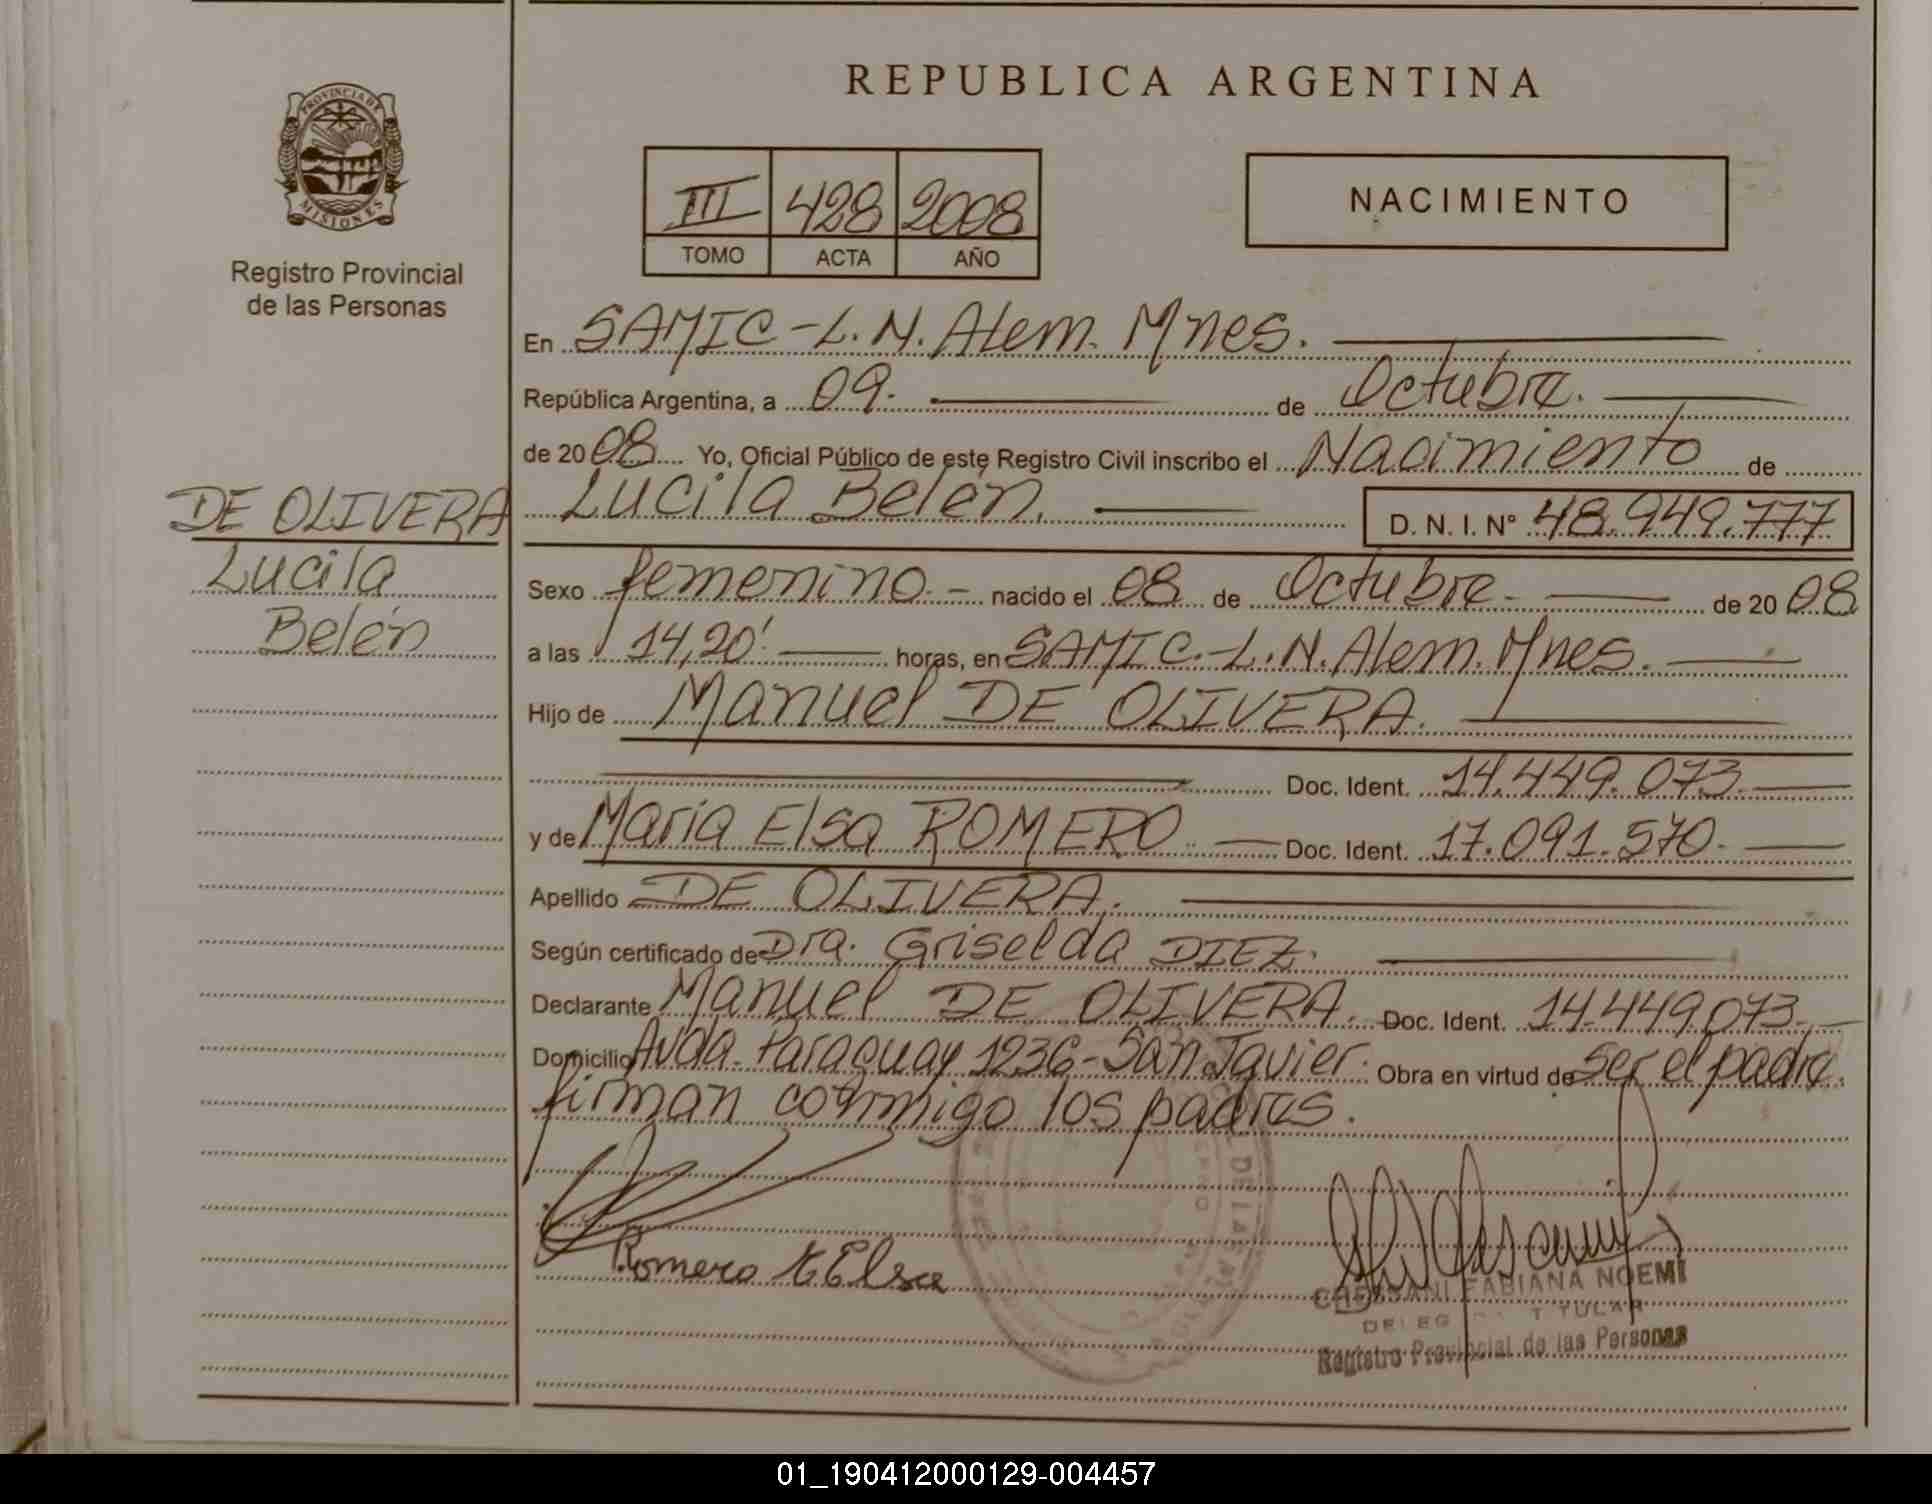 PROVINCIA DE
MISIONES
Registro Provincial
de las Personas
DE OLIVERA
Lucila
Belén
REPUBLICA ARGENTINA
III 428 2008
TOMO ACTA AÑO
NACIMIENTO
En SAMIC-L.N. Alem. Mnes.
República Argentina, a 09. de Octubre.
de 2008 Yo, Oficial Público de este Registro Civil inscribo el Nacimiento de
Lucila Belén. D. N. I. N° 48.949.777
Sexo femenino.- nacido el 08 de Octubre. de 2008
a las 14,20' horas, en SAMIC.-L.N. Alem. Mnes.
Hijo de Manuel DE OLIVERA.
Doc. Ident. 14.449.073.
y de Maria Elsa ROMERO. Doc. Ident. 17.091.570.
Apellido DE OLIVERA.
Según certificado de Dra. Griselda DIEZ.
Declarante Manuel DE OLIVERA. Doc. Ident. 14.449.073.
Domicilio Avda. Paraguay 1236-San Javier. Obra en virtud de ser el padre.
firman conmigo los padres.
DE LAS
Romero Elsa
FABIANA NOEMI
Registro Provincial de las Personas
01_190412000129-004457